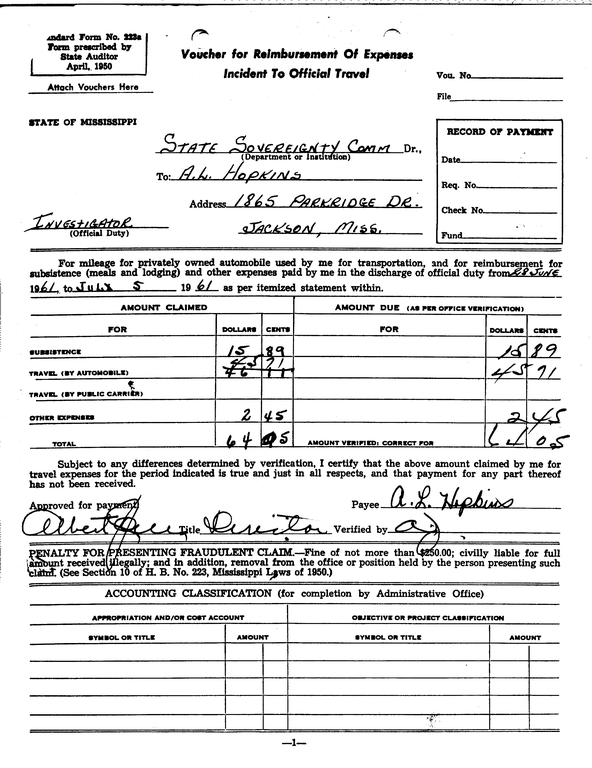 Standard Form No. 223a
Form prescribed by
State Auditor
April, 1950
Attach Vouchers Here
Voucher for Reimbursement Of Expenses
Incident To Official Travel
Vou. No.
File
STATE OF MISSISSIPPI
STATE SOVEREIGNTY COMM Dr.,
(Department or Institution)
To: A.L. HOPKINS
Address 1865 PARKRIDGE DR.
INVESTIGATOR JACKSON, MISS.
(Official Duty)
RECORD OF PAYMENT
Date
Req. No.
Check No.
Fund
For mileage for privately owned automobile used by me for transportation, and for reimbursement for
subsistence (meals and lodging) and other expenses paid by me in the discharge of official duty from 28 JUNE
1961, to JULY 5 1961 as per itemized statement within.
AMOUNT CLAIMED AMOUNT DUE (AS PER OFFICE VERIFICATION)
FOR DOLLARS CENTS FOR DOLLARS CENTS
SUBSISTENCE 15 89 15 89
TRAVEL (BY AUTOMOBILE) 45 71 45 71
46 11
TRAVEL (BY PUBLIC CARRIER)
OTHER EXPENSES 2 45 2 45
TOTAL 64 05 AMOUNT VERIFIED; CORRECT FOR 64 05
Subject to any differences determined by verification, I certify that the above amount claimed by me for
travel expenses for the period indicated is true and just in all respects, and that payment for any part thereof
has not been received.
Approved for payment Payee A. L. Hopkins
Albert Title Director Verified by
PENALTY FOR PRESENTING FRAUDULENT CLAIM.—Fine of not more than $250.00; civilly liable for full
amount received illegally; and in addition, removal from the office or position held by the person presenting such
claim. (See Section 10 of H. B. No. 223, Mississippi Laws of 1950.)
ACCOUNTING CLASSIFICATION (for completion by Administrative Office)
APPROPRIATION AND/OR COST ACCOUNT OBJECTIVE OR PROJECT CLASSIFICATION
SYMBOL OR TITLE AMOUNT SYMBOL OR TITLE AMOUNT
—1—